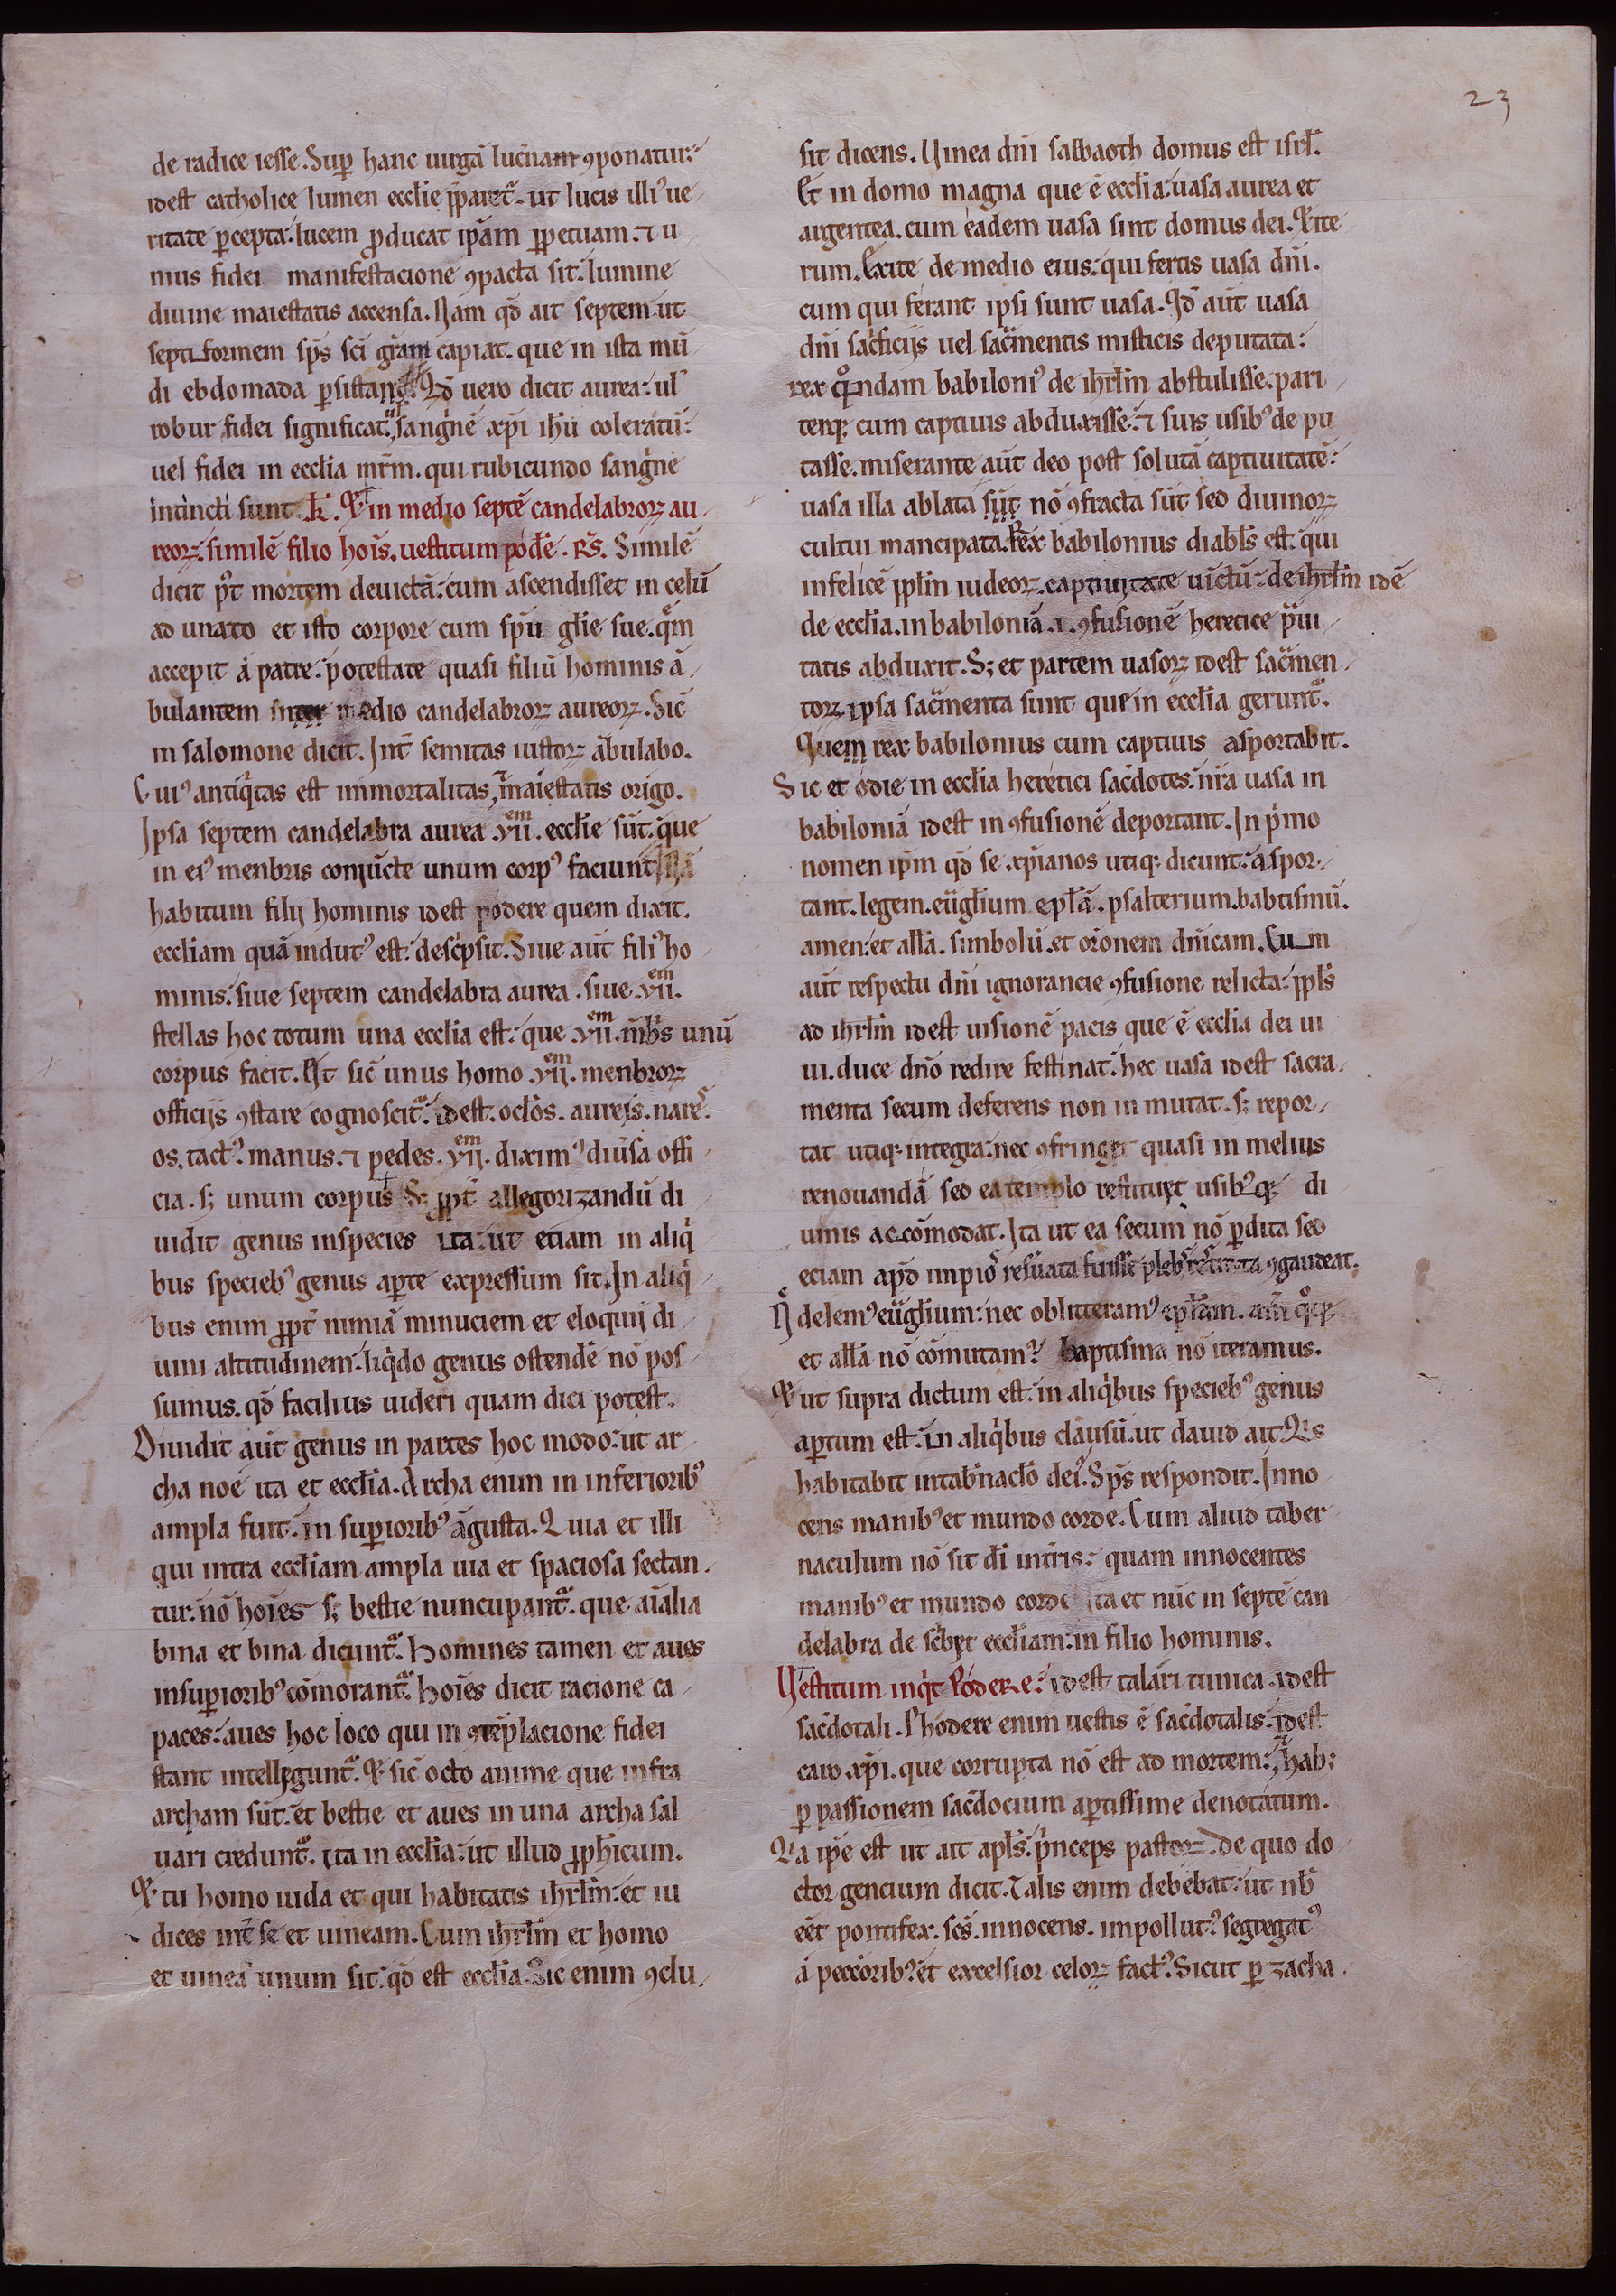 23
de radice iesse. Sup̄ hanc uirgā lucnam ꝯponatur:
idest catholice lumen ecclie p̄paretᷓ. ut lucis illiꝰ ue
ritate ꝑcepta: lucem ꝓducat ip̄am ꝑpetuam. ⁊ u
nius fidei manifestacione ꝯpacta sit: lumine
diuine maiestatis accensa. Nam qd̄ ait septem ut
septiformem sp̄s sc̄i gr̄am capiat. que in ista mū
di ebdomada ꝑsistant. Qd̄ uero dicit aurea: ul
robur fidei significatᷓ, sangͥne xp̄i ihū coleratū:
uel fidei in ecclia mr̄m. qui rubicundo sangͥne
intincti sunt. Et in medio septē candelabroꝝ au
reoꝝ: similē filio hoīs. uestitum podē. Rs̄. Similē
dicit p̄t mortem deuictā: cum ascendisset in celū
ad unato et isto corpore cum sp̄u glīe sue. qͣm
accepit á patre: potestate quasi filiū hominis ā
bulantem medio candelabroꝝ aureoꝝ. Sic̄
in salomone dicit. Int̄ semitas iustoꝝ ābulabo.
Cuiꝰ antiqͥtas est inmortalitas, maiestatis origo.
Ipsa septem candelabra aurea .vii.em ecclie sūt. que
in eiꝰ menbris coniūcte unum corpꝰ faciunt
habitum filij hominis idest podere quem dixit.
eccliam quā indutꝰ est: descͥpsit. Siue aūt filiꝰ ho
minis: siue septem candelabra aurea. siue .vii.em
stellas hoc totum una ecclia est: que .vii.em mb̄s unū
corpus facit. At sic̄ unus homo .vii.em menbroꝝ
officijs ꝯstare cognoscitᷓ. idest. oclōs. aureis. nareˢ.
os. tactꝰ. manus. ⁊ pedes. .vii.em diximꝰ diūsa offi
cia. sꝫ unum corpus Sꝫ ꝓpt̄ allegorizandū di
uidit genus inspecies ita: ut etiam in aliqͥ
bus speciebꝰ genus aꝑte expressum sit. In aliqͥ
bus enim ꝓpt̄ nimiā minuciem et eloquij di
uini altitudinem: liqͥdo genus ostendē nō pos
sumus. qd̄ facilius uideri quam dici potest.
Diuidit aūt genus in partes hoc modo: ut ar
cha noe ita et ecclia. Archa enim in inferioribꝰ
ampla fuit: in suꝑioribꝰ āgusta. Quia et illi
qui intra eccliam ampla uia et spaciosa sectan
tur: nō hoīes sꝫ bestie nuncupantᷓ. que aīalia
bina et bina dicuntᷓ. Homines tamen et aues
insuꝑioribꝰ cōmorantᷓ. Hoīes dicit racione ca
paces: aues hoc loco qui in ꝯtēplacione fidei
stant intelleguntᷓ. Et sic̄ octo anime que infra
archam sūt. et bestie et aues in una archa sal
uari creduntᷓ. ita in ecclia: ut illud ꝓphicum.
Et tu homo iuda et qui habitatis ihrl̄m: et iu
dices int̄ se et uineam. Cum ihrl̄m et homo
et uinea unum sit: qd̄ est ecclia. Sic enim ꝯclu
sit dicens. Uinea dn̄i sabbaoth domus est isrl̄.
Et in domo magna que ē ecclia: uasa aurea et
argentea. cum eadem uasa sint domus dei. Et ite
rum. Exite de medio eius: qui fertis uasa dn̄i.
cum qui ferant ipsi sunt uasa. Qd̄ aūt uasa
dn̄i sacͥficijs uel sacͣmentis misticis deputata:
rex qͦndam babiloniꝰ de ihrl̄m abstulisse. pari
terqꝫ cum captiuis abduxisse: ⁊ suis usibꝰ de pu
tasse. miserante aūt deo post solutā captiuitatē:
uasa illa ablata sūt nō ꝯfracta sūt sed diuinoꝝ
cultui mancipata. Rex babilonius diabl̄s est: qui
infelicē ppl̄m iudeoꝝ. captiuitate uictū: de ihrl̄m idē
de ecclia. in babiloniā .i. ꝯfusionē heretice pͣui
tatis abduxit. Sꝫ et partem uasoꝝ idest sacͣmen
toꝝ. ipsa sacͣmenta sunt que in ecclia geruntᷓ.
Quem rex babilonius cum captiuis asportabit.
Sic et odie in ecclia heretici sac̄dotes. nr̄a uasa in
babiloniā idest in ꝯfusionē deportant. In pͥmo
nomen ip̄m qd̄ se xp̄ianos utiqꝫ dicunt: aspor
tant. legem. euglium epl̄ā. psalterium. babtismū.
amen: et all̄a. simbolū. et orōnem dn̄icam. Cum
aūt respectu dn̄i ignorancie ꝯfusione relicta: ppl̄s
ad ihrl̄m idest uisionē pacis que ē ecclia dei ui
ui. duce dn̄o redire festinat: hec uasa idest sacra
menta secum deferens non in mutat. sꝫ repor
tat utiqꝫ integra: nec ꝯfringet quasi in melius
renouandā sed ea templo restituet usibꝰqꝫ di
uinis accōmodat. Ita ut ea secum nō ꝑdita sed
eciam apd̄ impioˢ res̄uata fuisse plebˢ restituta ꝯgaudeat.
Nͨ delemꝰ euglium: nec oblitteramꝰ epl̄am. am̄ qͦqꝫ
et all̄a nō cōmutamꝰ. baptisma nō iteramus.
Et ut supra dictum est: in aliqͥbus speciebꝰ genus
aꝑtum est. in aliqͥbus clausū. ut dauid ait. Qͥs
habitabit intab̄naclō dei. Sp̄s respondit. Inno
cens manibꝰ et mundo corde. Cum aliud taber
naculum nō sit dī int̄ris: quam innocentes
manibꝰ et mundo corde ita et nūc in septē can
delabra de scͥbet eccliam: in filio hominis.
Uestitum inqͥt Podere: idest talari tunica. idest
sac̄dotali. Phodere enim uestis ē sac̄dotalis: idest
caro xp̄i. que corrupta nō est ad mortem: habꝫ
ꝑ passionem sac̄docium aꝑtissime denotatum.
Qͣ ip̄e est ut ait apl̄s: pͥnceps pastoꝝ. de quo do
ctor gencium dicit. Talis enim debebat: ut nb̄
eēt pontifex. sc̄s. innocens. impollutꝰ. segregatꝰ
á peccōribꝰ. et excelsior celoꝝ factꝰ. Sicut ꝑ zacha